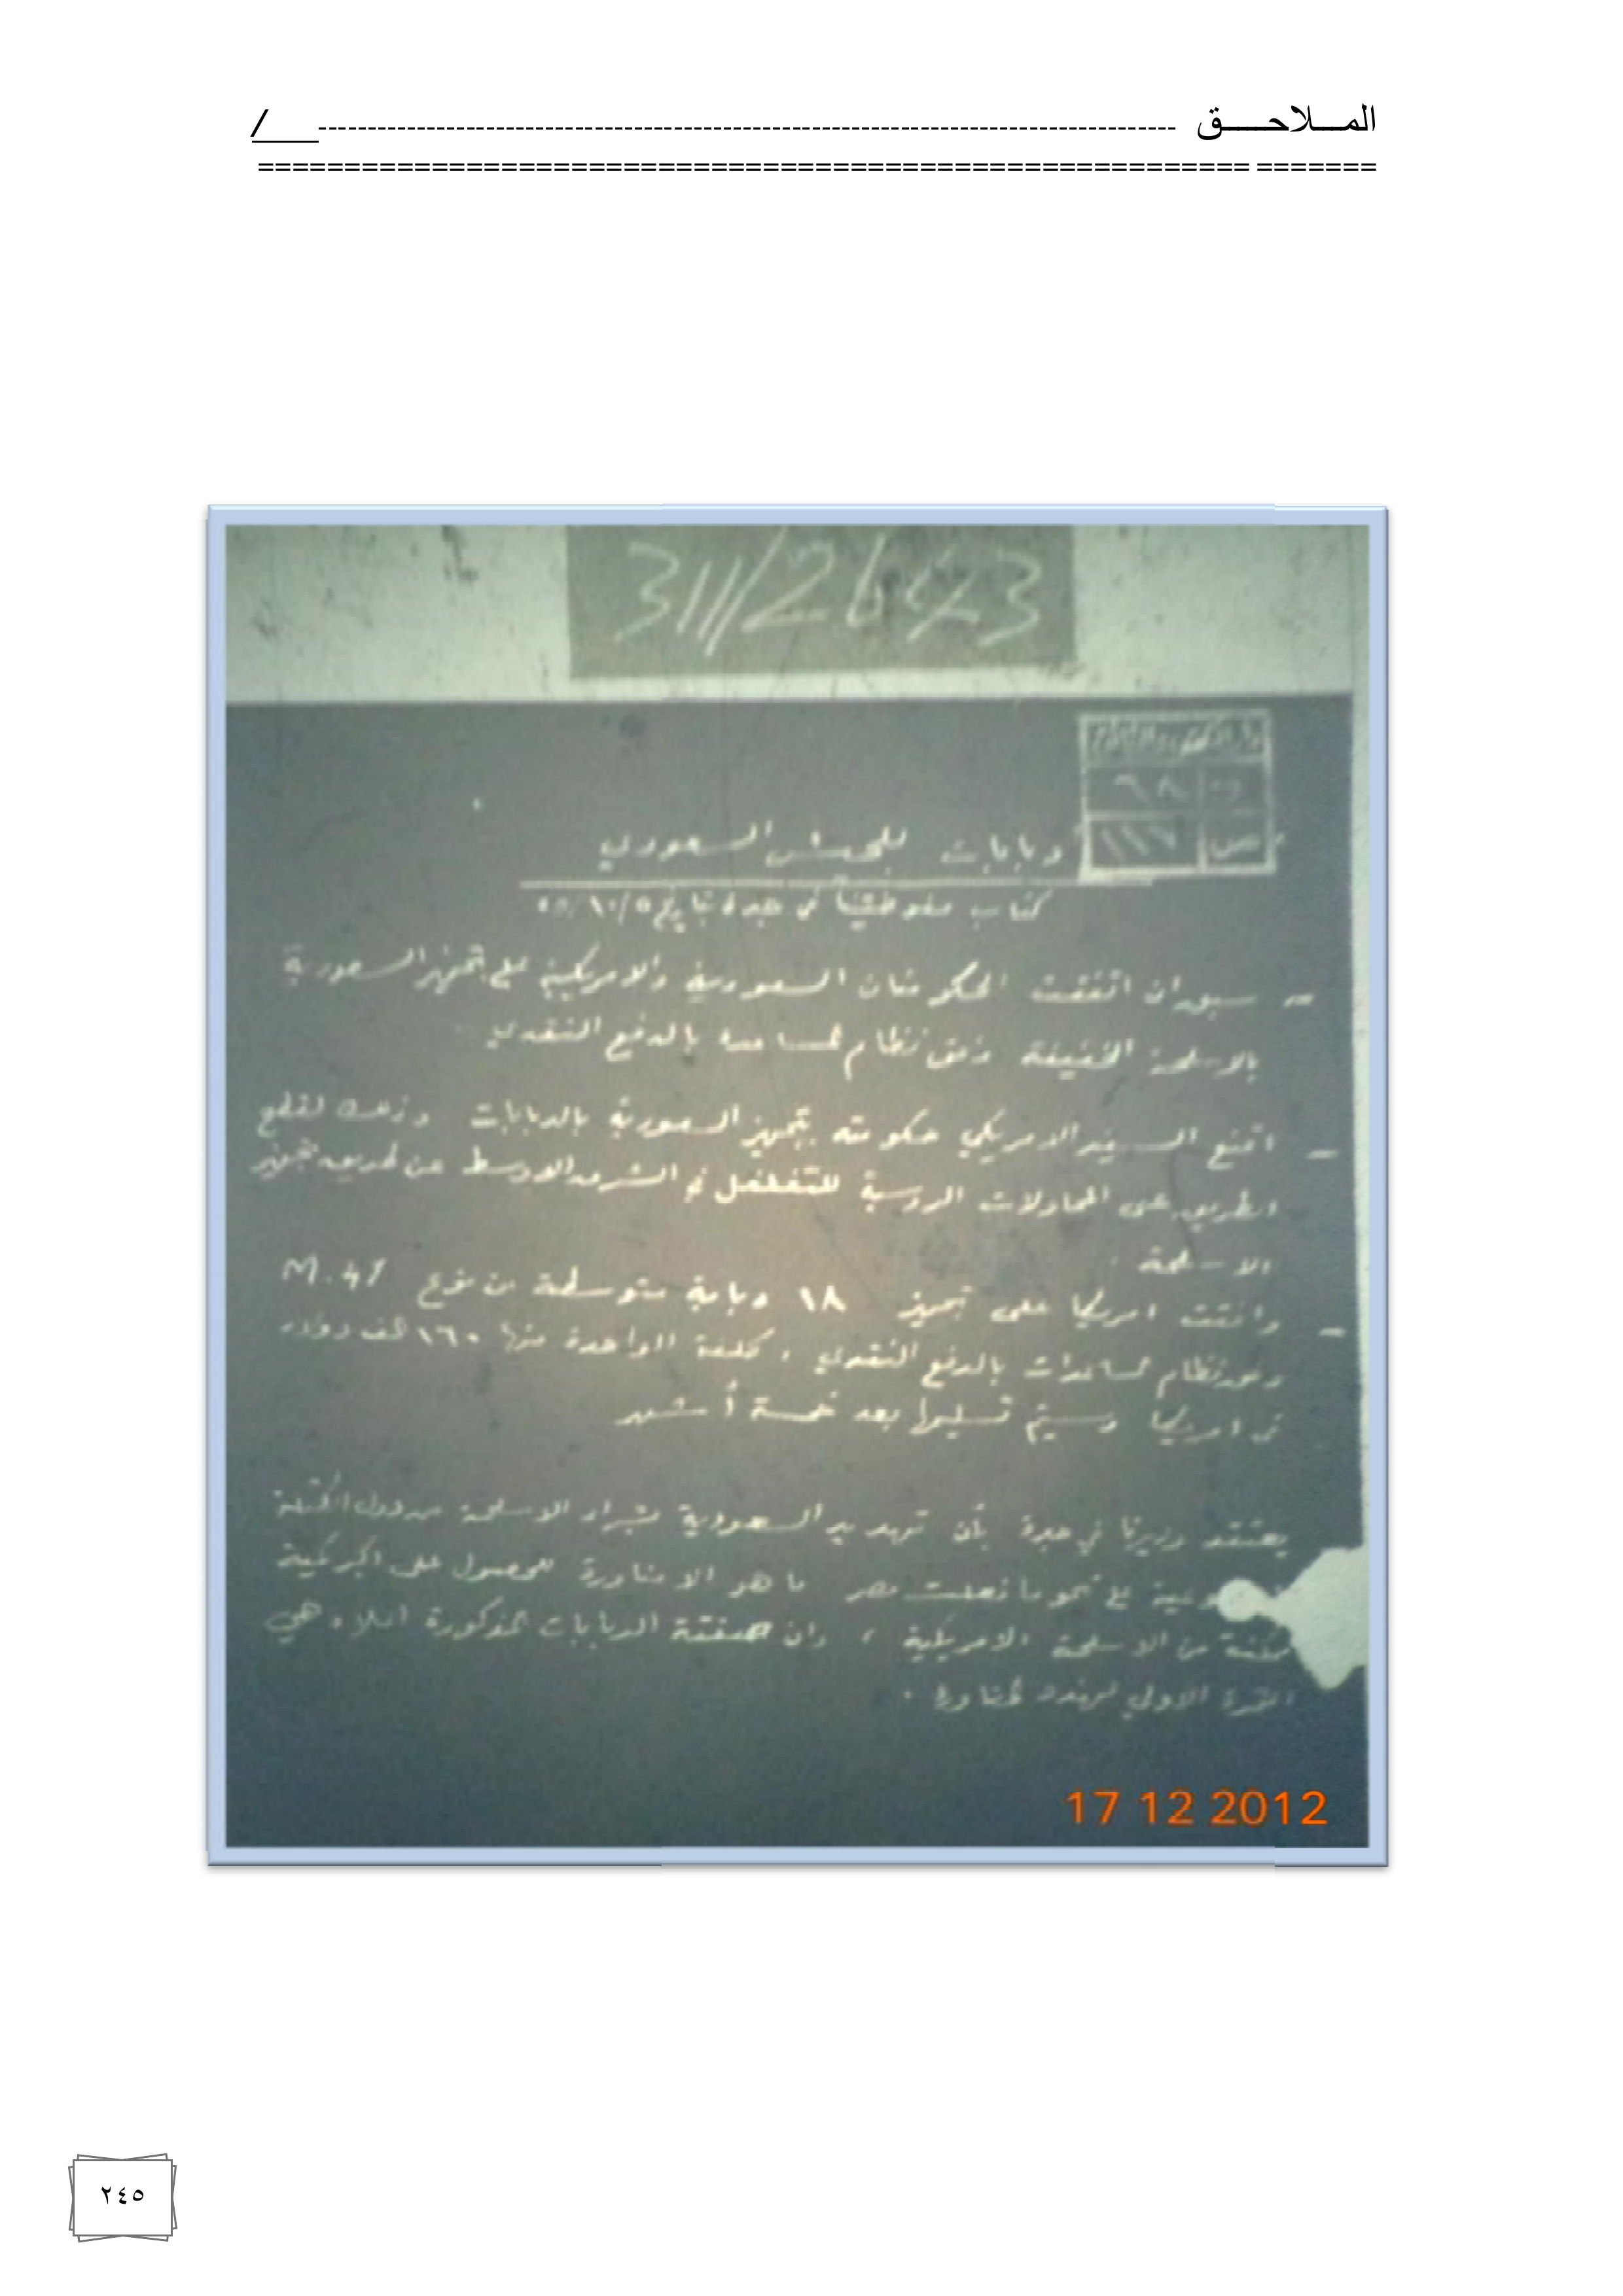 الملاحـــق
311/2643
دار الكتب والوثائق
و ٦٨
ص ١١٧
دبابات للجيش السعودي
كتاب مفوضيتنا في جدة بتاريخ ٥٥/١٠/٥
- سبق ان اتفقت الحكومتان السعودية والامريكية على تجهيز السعودية
بالاسلحة الخفيفة وفق نظام المساعدة بالدفع النقدي
- اقنع السفير الامريكي حكومته بتجهيز السعودية بالدبابات وذلك لقطع
الطريق على المحاولات الروسية للتغلغل في الشرق الاوسط عن طريق تجهيز
الاسلحة .
- وافقت امريكا على تجهيز ١٨ دبابة متوسطة من نوع M.47
وفق نظام المساعدات بالدفع النقدي ، كلفة الواحدة منها ١٦٠ الف دولار
في امريكا وسيتم تسليمها بعد خمسة أشهر
يعتقد وزيرنا في جدة بأن تهديد السعودية بشراء الاسلحة من دول الكتلة
على نحو ما فعلت مصر ما هو الا مناورة للحصول على اكبر كمية
ممكنة من الاسلحة الامريكية ، وان صفقة الدبابات المذكورة اعلاه هي
الثمرة الاولى لهذه المناورة .
17 12 2012
٢٤٥